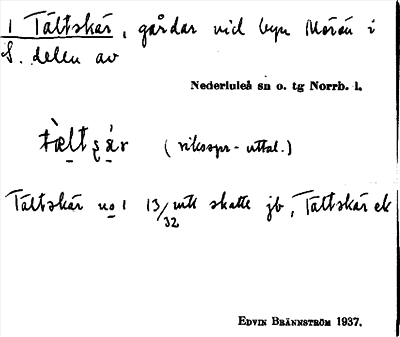 1 Tältskär, gårdar vid byn Morån i
S. delen av
Nederluleå sn o. tg Norrb. l.
tæ̀ltʂǽr (riksspr-uttal.)
Tältskär no 1 13/32 mtl skatte jb, Tältskär ek
EDVIN BRÄNNSTRÖM 1937.